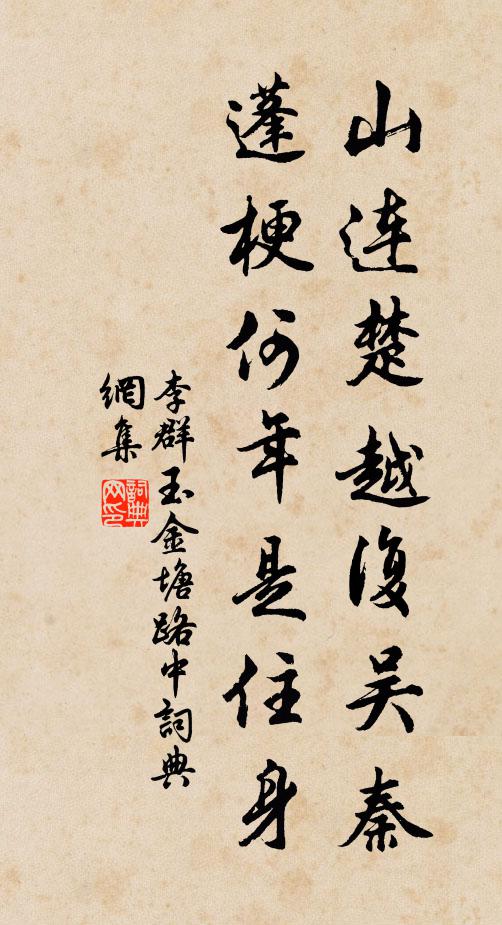 山连楚越復吴秦
蓬梗何年是住身
李群玉金塘路中詞典
網集
詞典
网印